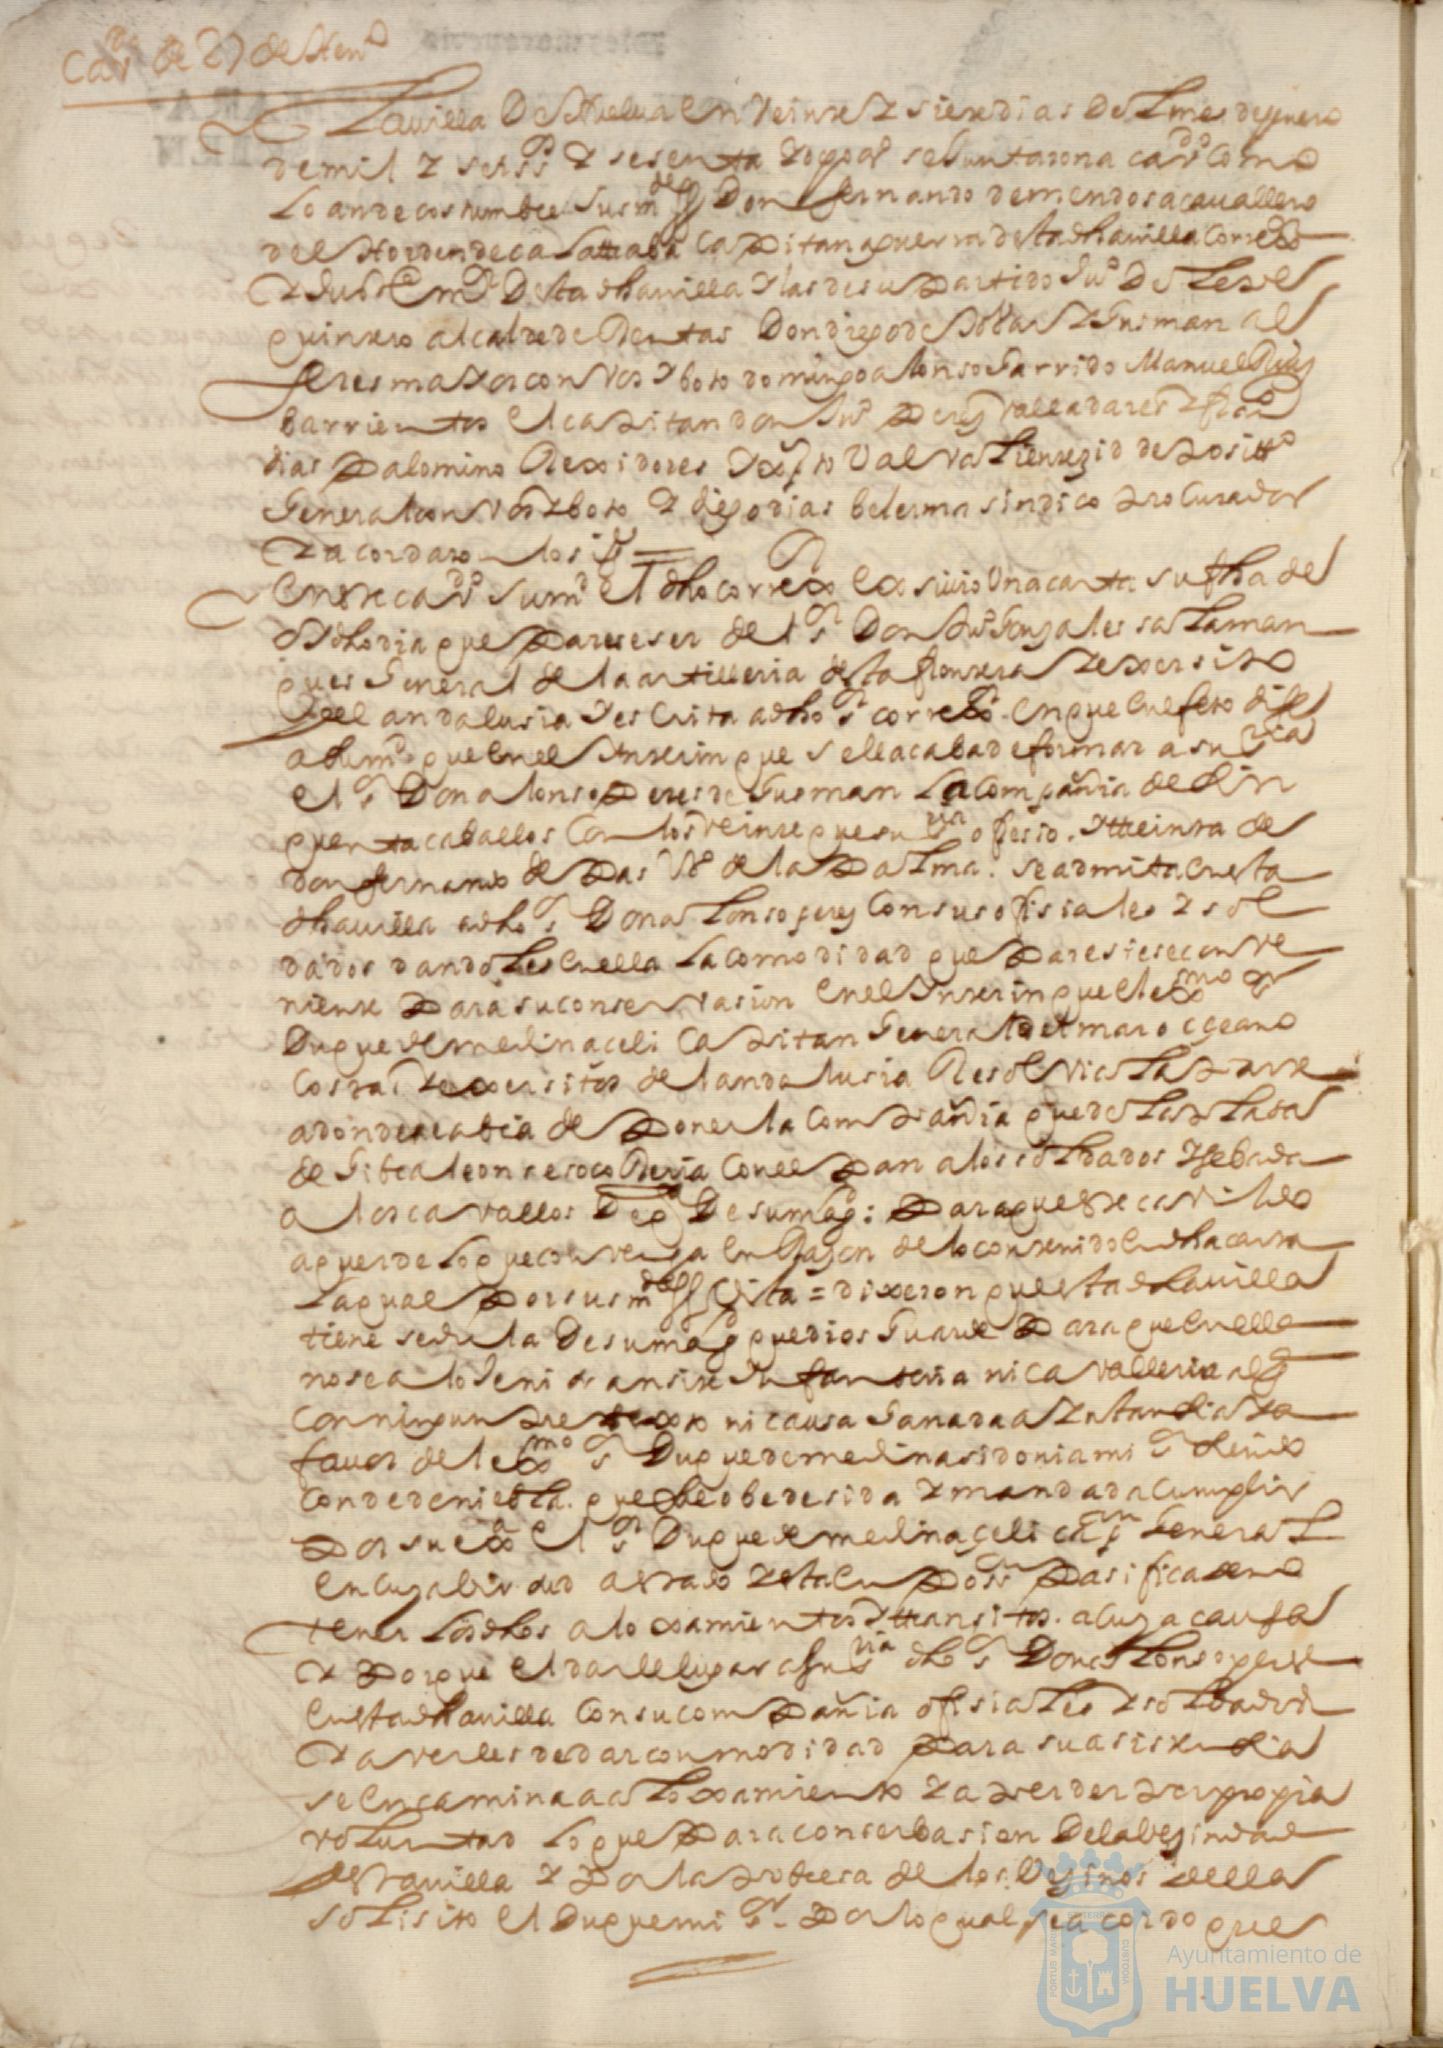 Cavdo de 27 de Henº
La villa De Huelua en Veinte y siete dias Del mes de henero
de mil y seissos y sesenta y ocho aos se Juntaron a cavdo como
lo an de costumbre sus mdes Don fernando de mendosa cauallero
del Horden de calattraba Capitan a guerra desta dha villa Correxor
y Juos Desta dha villa y las de su Partido Juº De
quintero alcalde de Rentas Don diego de Guzman al
feres maior con vos y boto domingo alonso Garrido Manuel Ruiz
barrientos el capitan don Juº Perez valladares y franco
dias Palomino Rexidores depositto
General con vos y boto y diego dias belerma sindico Procurador
y acordaron lo sigte
En este cavdo su md el dho correxor exsiuio Una carta su fha de
dho dia que Parese ser del sr Don Juº Gonzales salaman
ques General de la artilleria desta frontera y exersito
del andalusia y escrita a dho sr correxor en que en efeto dise
a su md que en el Interin que se lle acaba de formar a su sria
el sr Don alonso Peres de Gusman La compañia de sin
quenta caballos Con los Veinte que su sria ofesio. y tteinta de
don fernando de Paz Vº de la Palma. se admita en esta
dha villa a dho sr Don alonso perez Con sus ofisiales y sol
dados dandoles en ella La comodidad que Paresiese conve
niente Para su conservasion en el Interin que el exmo sr
Duque de medinaceli Capitan General del mar oçeano
costas y exersitos del andalusia Resolvia La Parte
a donde auia de Poner la Compañia que de La Plasa
de Gibraleon se socoReria Con el Pan a los soldados y sebada
a los cavallos De qta De su magd: Para que este cavildo
aquerde lo que convenga en Razon de lo contenido en dha carta
La qual Por sus mdes Vista = dixeron que esta dha uilla
tiene sedula De su magd que dios Guarde Para que en ella
no se aloJe ni transite Infanteria ni cavalleria alga
con ningun Pretexto ni causa Ganada a Instancia y a
fauor del exmo sr Duque de medinasidonia mi sr
conde de niebla. que fue obedesida y mandada cumplir
Por su exa el sr Duque de medinaçeli capan General
En cuya birtud a estado y esta en Poson Pasifica de no
tener Los dhos aloxamientos y transitos. a cuya causa
y Porque el darle lugar a su sria dho sr Don alonso perez
En esta dha uilla con su compañia ofisiales y soldados
y averles de dar conmodidad Para su asistencia
se encamina a aloxamiento y a Perder Por propia
voluntad lo que Para conserbasion De la besindad
desta uilla y Por la Pobresa de los Vesinos della
solisito el Duque mi sr. Por lo qual se acordo que
Ayuntamiento de
HUELVA